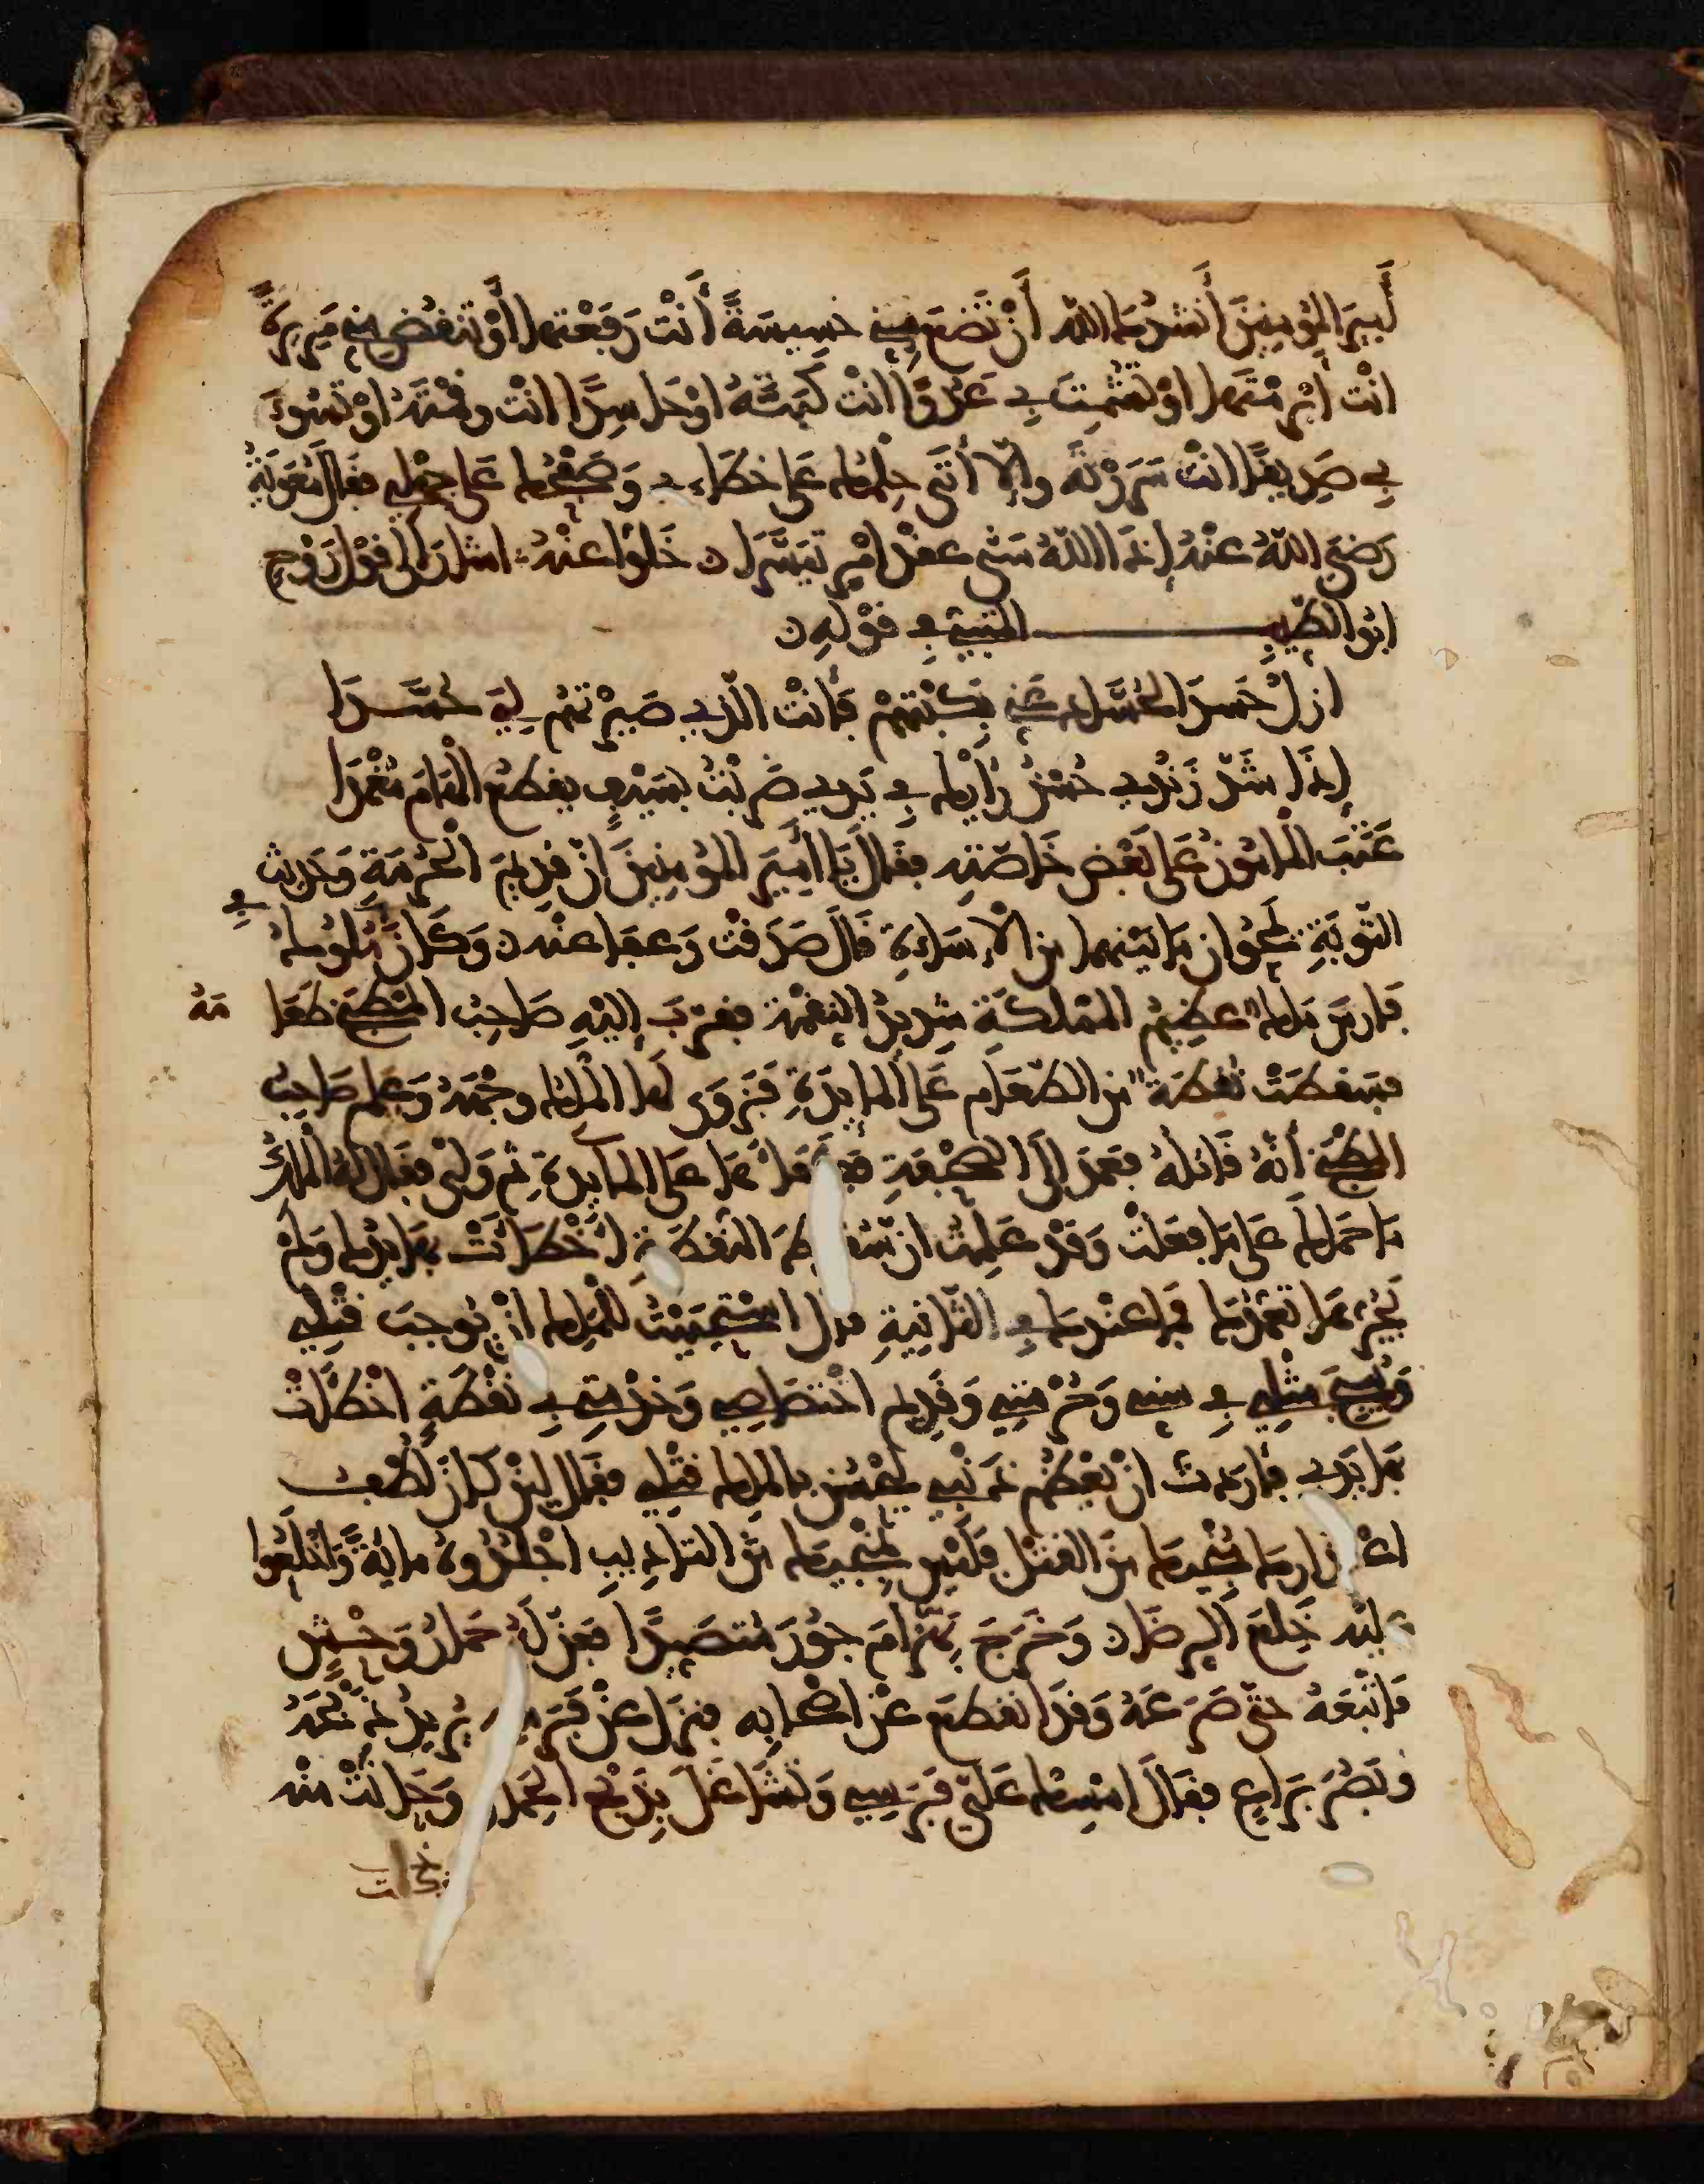 أميرَ المؤمنينَ أنشدُكَ اللهَ أنْ تَضَعَ مِنِّي خسيسَةً أنْتَ رَفَعْتها أوْ تنقُضَ مِنِّي مَرِيرَةً
انْتَ ابْرمْتَها اوْ تُشْمِتَ بي عَدُوًّا انْتَ كَبَتَّهُ اوْ حاسِدًا انْتَ وقمْتَهُ اوْ تسُوءَ
بي صَدِيقًا انْتَ سَرَرْتَهُ وإلّا أتَى حِلْمُكَ على خطاءي وَصَفْحُكَ عَلى جهْلي فقالَ مُعَوِيَةُ
رَضيَ اللهُ عنْهُ إذا اللهُ سَنّى عقدَ امْرٍ تيَسَّرا خَلُّوا عنْهُ اشارَ الى قوْل رَوْحٍ
ابُو الطّيبِ المتنبي في قوْلِهِ
ازِلْ حَسَدَ الحُسّادِ عَنِّي بكَبْتِهمْ فأنْتَ الّذِي صَيّرْتَهُم لِيَ حُسَّدَا
إذَا شَدّ زَنْدِي حُسْنُ رَأْيِكَ في يَدِي ضَربْتُ بسَيْفٍ يقطعُ الهَامَ مُغْمَدَا
عَتَبَ المامُونُ عَلى بَعْض خَاصّتِه فقالَ يَا أمِيرَ المؤمِنِينَ انّ قدِيمَ الحُرْمَةِ وَحَدِيثَ
التّوبَةِ يَمْحُوانِ مَا بَيْنهما من الإسَاءةِ قالَ صَدَقْتَ وَعفا عنْه وَكَانَ مَلِكٌ مِنْ مُلُوكِ
فارِسَ مَلِكًا عظِيمَ المملكَةِ شدِيدَ النِقْمَةِ فقرّبَ إليْهِ صاحِبُ المطبَخِ طعَامَهُ
فسَقطَتْ نُقطَةٌ من الطّعَامِ عَلَى المايِدَةِ فَزَوَى لها المَلِكُ وجْهَهُ وَعَلِمَ صَاحِبُ
المطبَخِ أنّهُ قَاتِلُهُ فعَمَدَ إلَى الصَّحْفَةِ فكفأها عَلى المايِدةِ ثم وَلّى فقالَ لهُ المَلِكُ
مَا حَمَلكَ عَلى مَا فعَلْتَ وَقَدْ عَلِمْتَ ان سُقُوطَ النُقْطَةِ اخْطأتْ بهَا يَدُكَ وَلَمْ
يَجْرِ بهَا تعَمُّدُكَ فما عنْدكَ في الثّانِيةِ قال اسْتَحْيَيْتُ للمَلِكِ انْ يُوجبَ قتْلي
وَيُبيحَ مِثْلي في سِنِّي وَحُرْمَتي وَقدِيمِ اخْتِصَاصِي وَخِدْمَتي في نقْطَةٍ اخْطأتْ
بهَا يَدِي فأرَدتُ انْ يَعْظُمَ ذَنْبي ليَحْسُنَ بالمَلِكِ قتْلي فقَالَ لئنْ كَانَ لُطْفُ
اعْتذارِكَ يُنْجِيكَ مِنَ القَتْلِ فلَيْس يُنْجِيكَ مِنَ التاديبِ اجْلِدُوهُ مايةً وَاخْلَعُوا
عليْه خِلَعَ الرِضَا وَخَرَجَ بَهْرَامَ جورَ مُتصَيِّدًا فعَنّ لَهُ حمَارُ وَحْشٍ
فاتْبَعَهُ حتّى صَرَعَهُ وَقَدَ انقطعَ عَنْ اصْحَابِه فنزَلَ عَنْ فَرَسِهِ يُرِيدُ ذَبْحَهُ
وَبَصُرَ بِرَاعٍ فقَالَ امْسِكْ عَلَيّ فَرَسِي وَتشَاغَلَ بِذَبْحِ الحِمَارِ وَحَانَتْ منْه